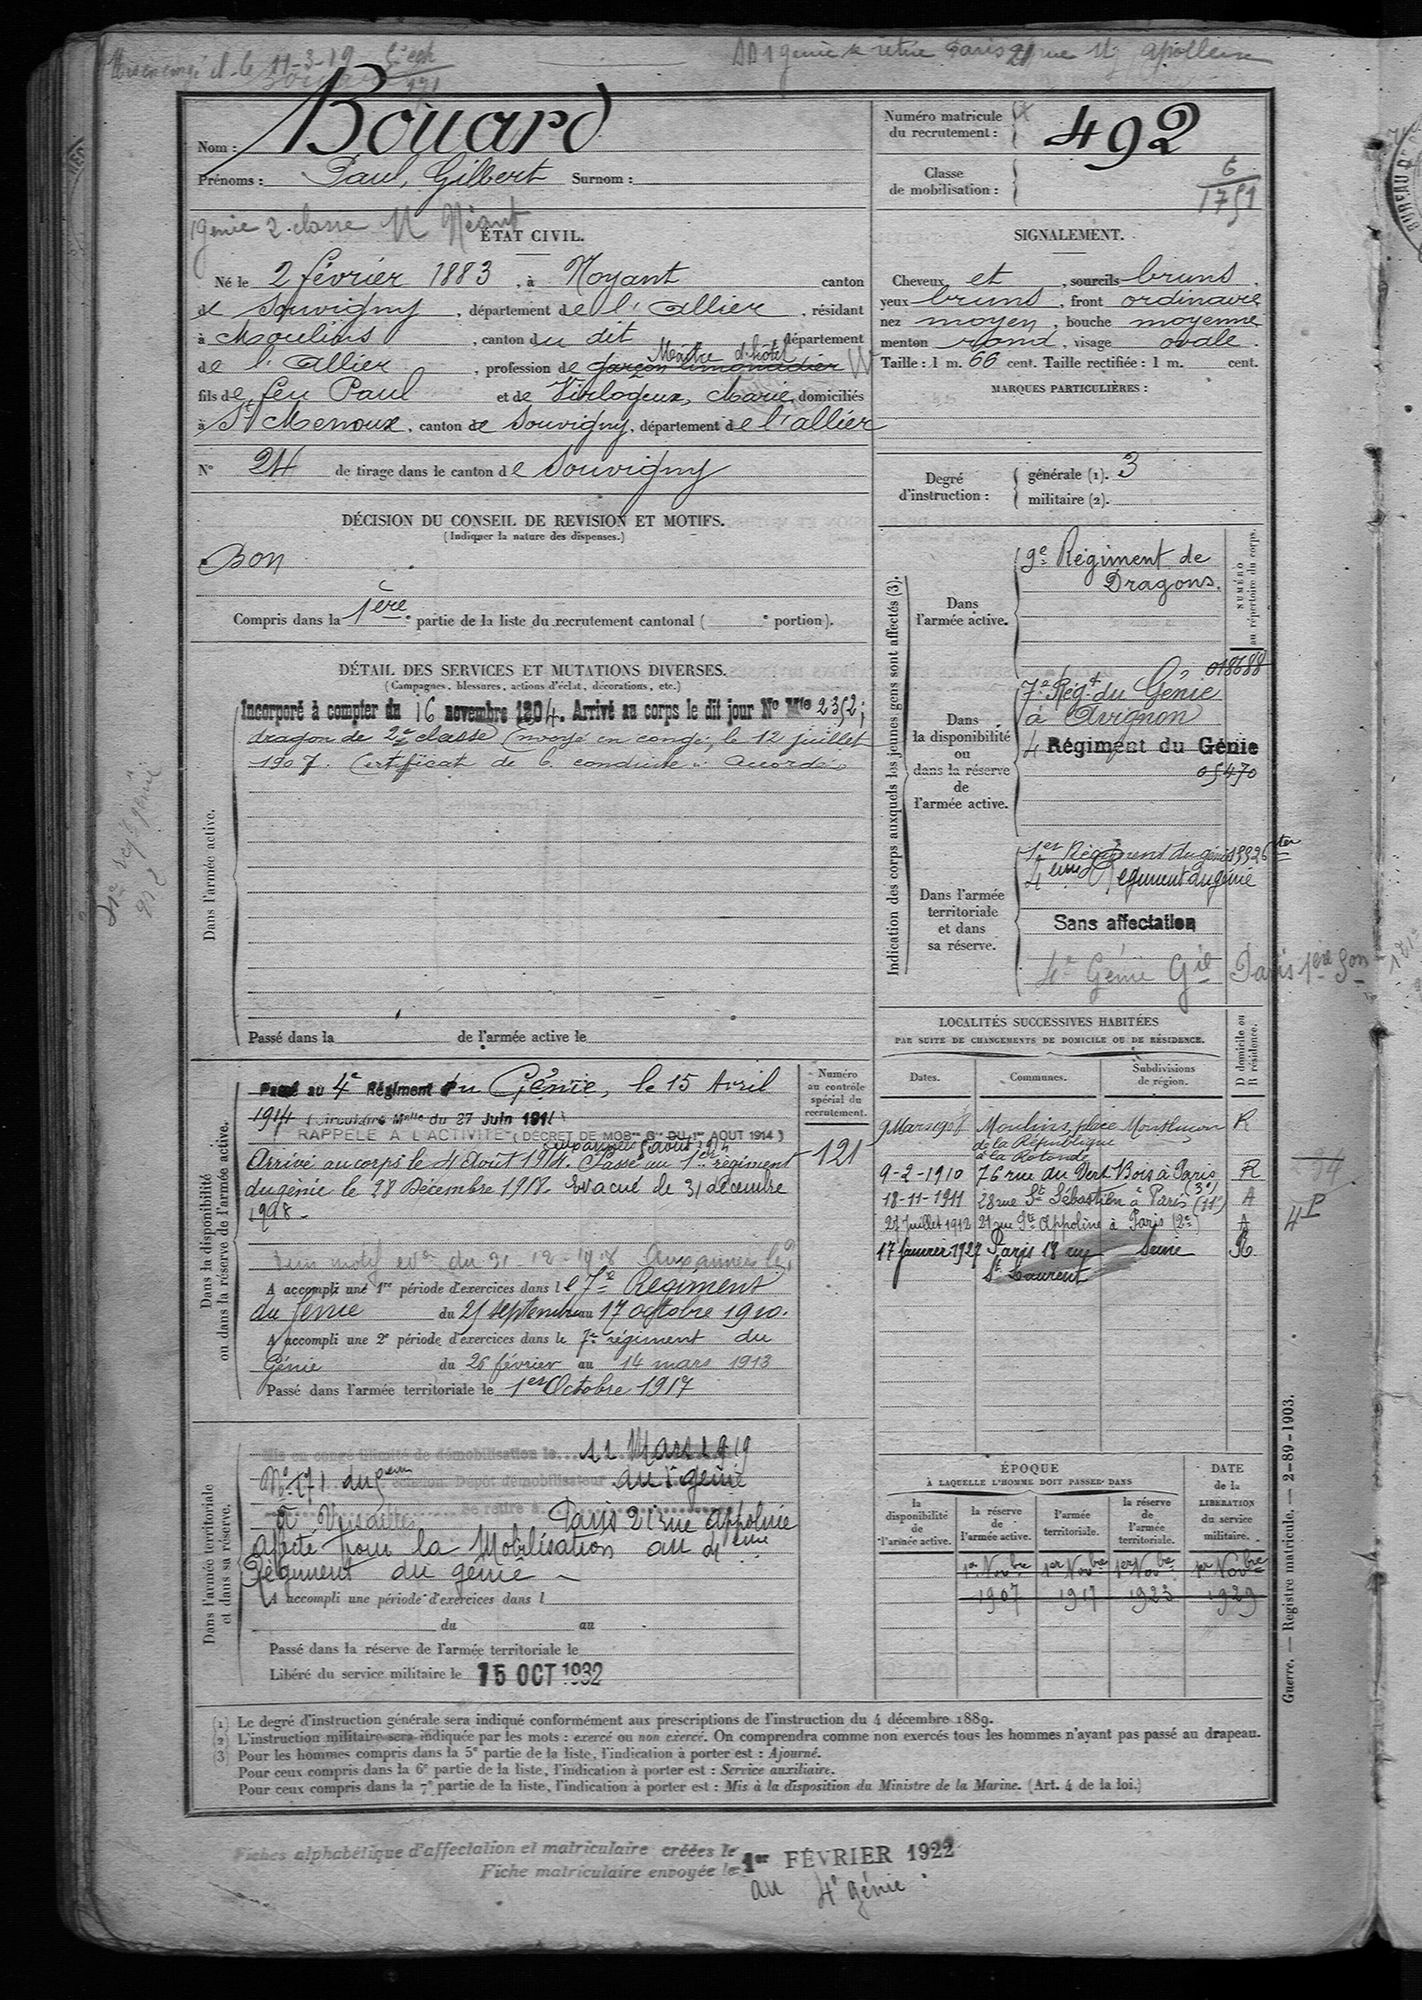 DD 1 génie se retire Paris 21 rue
11-3-19
Nom : Bouard
Prénoms : Paul, Gilbert Surnom :
Numéro matricule du recrutement : 492
Classe de mobilisation : 6
1751
génie 2e classe Néant
ÉTAT CIVIL.
Né le 2 février 1883, à Noyant canton
de Souvigny, département de l'Allier, résidant
à Moulins, canton du dit département
Maître d'hôtel
de l'Allier, profession de garçon limonadier
fils de feu Paul et de Virlogeux, Marie, domiciliés
à St Menoux, canton de Souvigny, département de l'Allier
N° 24 de tirage dans le canton de Souvigny
SIGNALEMENT.
Cheveux et, sourcils bruns,
yeux bruns, front ordinaire
nez moyen, bouche moyenne
menton rond, visage ovale.
Taille : 1 m. 66 cent. Taille rectifiée : 1 m. cent.
MARQUES PARTICULIÈRES :
Degré d'instruction : générale (1). 3
militaire (2).
DÉCISION DU CONSEIL DE REVISION ET MOTIFS.
(Indiquer la nature des dispenses.)
Bon
Compris dans la 1ère partie de la liste du recrutement cantonal ( e portion).
DÉTAIL DES SERVICES ET MUTATIONS DIVERSES.
(Campagnes, blessures, actions d'éclat, décorations, etc.)
Dans l'armée active.
Incorporé à compter du 16 novembre 1904. Arrivé au corps le dit jour No Mle 2352;
dragon de 2e classe. Envoyé en congé, le 12 juillet
1907. Certificat de b. conduite : Accordé.
Passé dans la de l'armée active le
Indication des corps auxquels les jeunes gens sont affectés (3).
NUMÉRO au répertoire du corps.
Dans l'armée active.
9e Régiment de
Dragons.
018688
Dans la disponibilité ou dans la réserve de l'armée active.
7e Régt du Génie
à Avignon
4 Régiment du Génie
05470
Dans l'armée territoriale et dans sa réserve.
1er Régiment du génie 19926 ter
4ème Régiment du génie
Sans affectation
4e Génie Gie Paris 1ère Son
LOCALITÉS SUCCESSIVES HABITÉES
PAR SUITE DE CHANGEMENTS DE DOMICILE OU DE RÉSIDENCE.
Dates. Communes. Subdivisions de région. D domicile ou R résidence.
9 Mars 1908 Moulins, place Montluçon R
de la République
à la Rotonde
9-2-1910 76 rue du Vert Bois à Paris (3e) R
18-11-1911 28 rue St Sébastien à Paris (11e) A
21 rue Ste Appoline à Paris (2e) A
17 janvier 1927 Paris 18 rue Seine R
St Laurent
4P
Dans la disponibilité ou dans la réserve de l'armée active.
Numéro au contrôle spécial du recrutement.
121
Passé au 4e Régiment du Génie, le 15 Avril
1914 (Circulaire Mlle du 27 Juin 1914)
RAPPELÉ A L'ACTIVITÉ (DÉCRET DE MOBon Gle DU 1er AOUT 1914)
Arrivé au corps le 4 Août 1914. Passé au 1er régiment
du génie le 28 Décembre 1918. Evacué le 31 décembre
1918.
A accompli une 1re période d'exercices dans le 7e Régiment
du Génie du 21 septembre au 17 octobre 1910.
A accompli une 2e période d'exercices dans le 7e régiment du
Génie du 26 février au 14 mars 1913
Passé dans l'armée territoriale le 1er Octobre 1917
Dans l'armée territoriale et dans sa réserve.
Mis en congé illimité de démobilisation le 11 Mars 1919
No 171 du 5em échelon Dépôt démobilisateur du 1er génie
à Versailles Se retire à Paris 21 rue Appoline
Affecté pour la Mobilisation au 4ème
Régiment du génie
A accompli une période d'exercices dans l
du au
Passé dans la réserve de l'armée territoriale le
Libéré du service militaire le 15 OCT 1932
ÉPOQUE
À LAQUELLE L'HOMME DOIT PASSER DANS
DATE de la LIBÉRATION du service militaire.
la disponibilité de l'armée active. la réserve de l'armée active. l'armée territoriale. la réserve de l'armée territoriale.
1er Novbre 1er Novbre 1er Novbre 1er Novbre
1907 1917 1923 1929
Guerre. — Registre matricule. — 2-89-1903.
(1) Le degré d'instruction générale sera indiqué conformément aux prescriptions de l'instruction du 4 décembre 1889.
(2) L'instruction militaire sera indiquée par les mots : exercé ou non exercé. On comprendra comme non exercés tous les hommes n'ayant pas passé au drapeau.
(3) Pour les hommes compris dans la 5e partie de la liste, l'indication à porter est : Ajourné.
Pour ceux compris dans la 6e partie de la liste, l'indication à porter est : Service auxiliaire.
Pour ceux compris dans la 7e partie de la liste, l'indication à porter est : Mis à la disposition du Ministre de la Marine. (Art. 4 de la loi.)
Fiches alphabétique d'affectation et matriculaire créées le
Fiche matriculaire envoyée le 1er FÉVRIER 1922
au 4e génie.